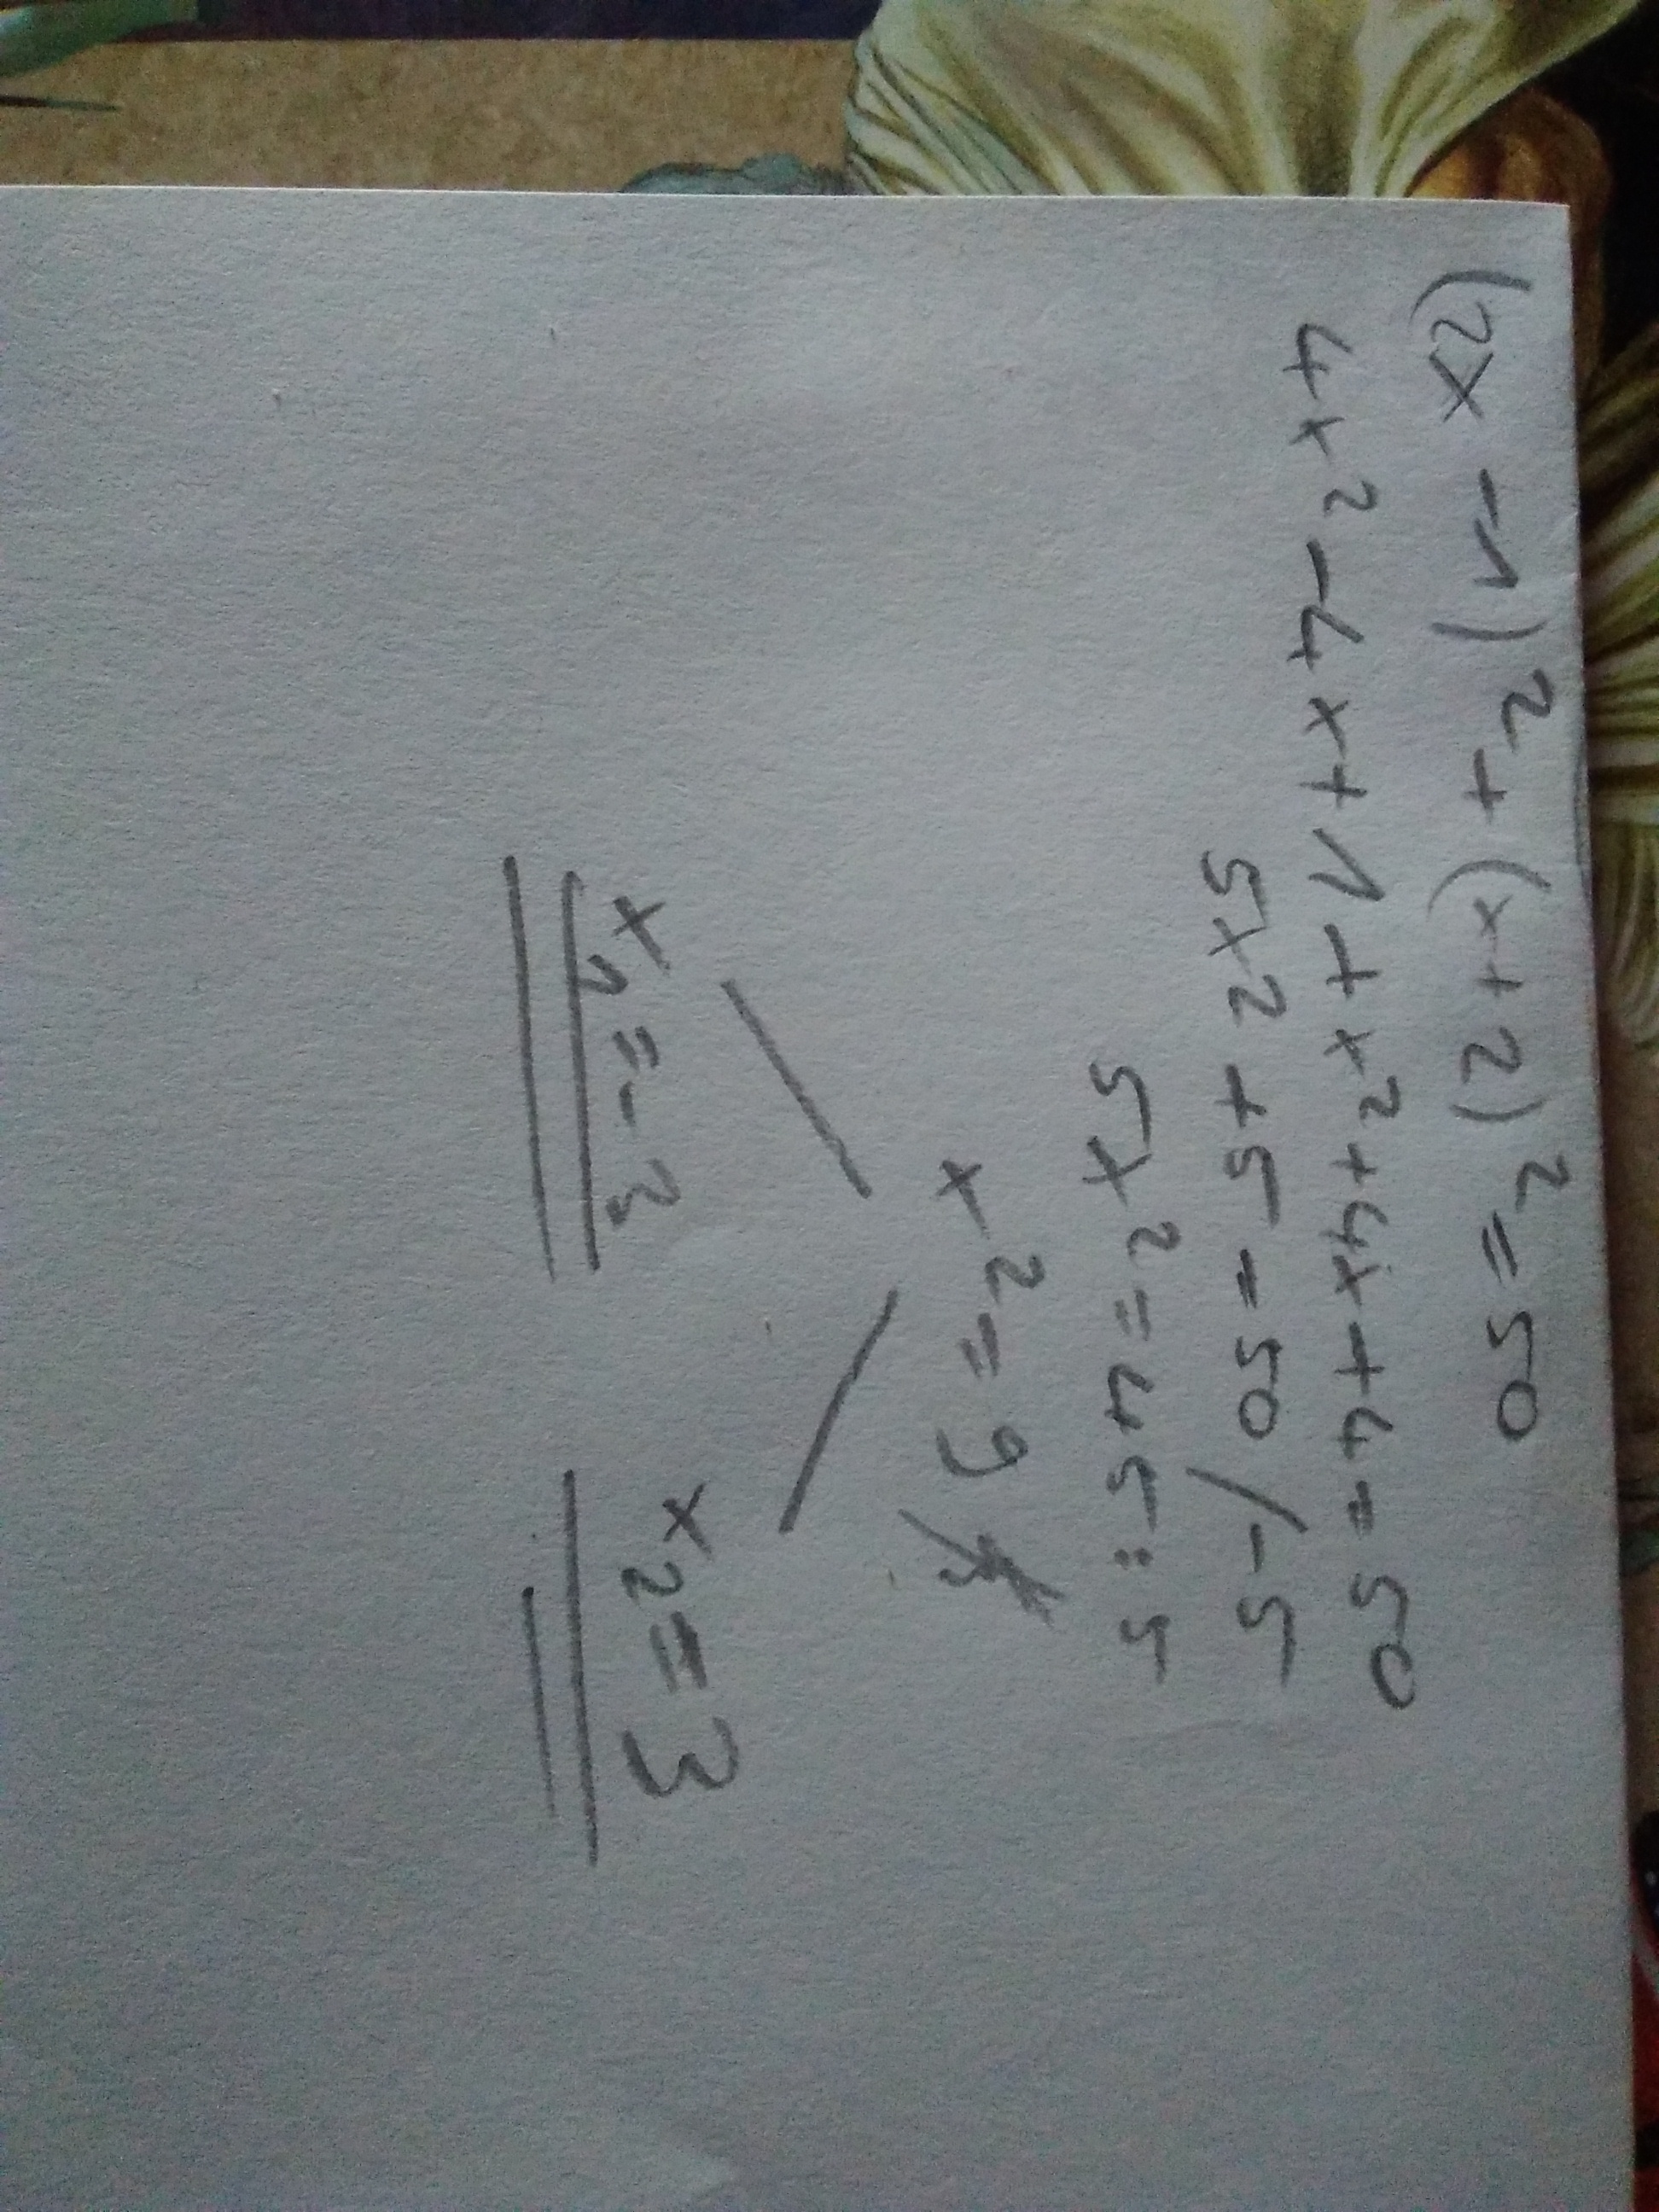 (2x - 1)² + (x + 2)² = 50
4x² - 4x + 1 + x² + 4x + 4 = 50
5x² + 5 = 50 / -5
5x² = 45 : 5
x² = 9 /
x₁ = -3 x₂ = 3